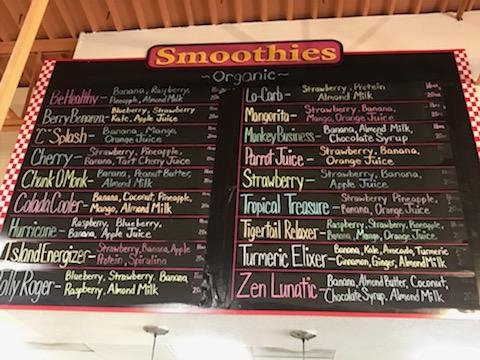 Smoothies
~Organic~
BeHealthy - Banana, Raspberry,
Pineapple, Almond Milk
Berry Bananza - Blueberry, Strawberry
Kale, Apple Juice
"C" Splash - Banana, Mango,
Orange Juice
Cherry - Strawberry, Pineapple,
Banana, Tart Cherry Juice
Chunk O Monk - Banana, Peanut Butter,
Almond Milk
Colada Cooler - Banana, Coconut, Pineapple,
Mango, Almond Milk
Hurricane - Raspberry, Blueberry,
Banana, Apple Juice
Island Energizer - Strawberry, Banana, Apple
Protein, Spirulina
Jolly Roger - Blueberry, Strawberry, Banana
Raspberry, Almond Milk
Lo-Carb - Strawberry, Protein
Almond Milk
Mangorita - Strawberry, Banana,
Mango, Orange Juice
Monkey Business - Banana, Almond Milk,
Chocolate Syrup
Parrot Juice - Strawberry, Banana,
Orange Juice
Strawberry - Strawberry, Banana,
Apple Juice
Tropical Treasure - Strawberry Pineapple,
Banana, Orange Juice
Tigertail Relaxer - Raspberry, Strawberry, Pineapple,
Banana, Mango, Orange Juice
Turmeric Elixer - Banana, Kale, Avocado, Turmeric
Cinnamon, Ginger, Almond Milk
Zen Lunatic - Banana, Almond Butter, Coconut,
Chocolate Syrup, Almond Milk